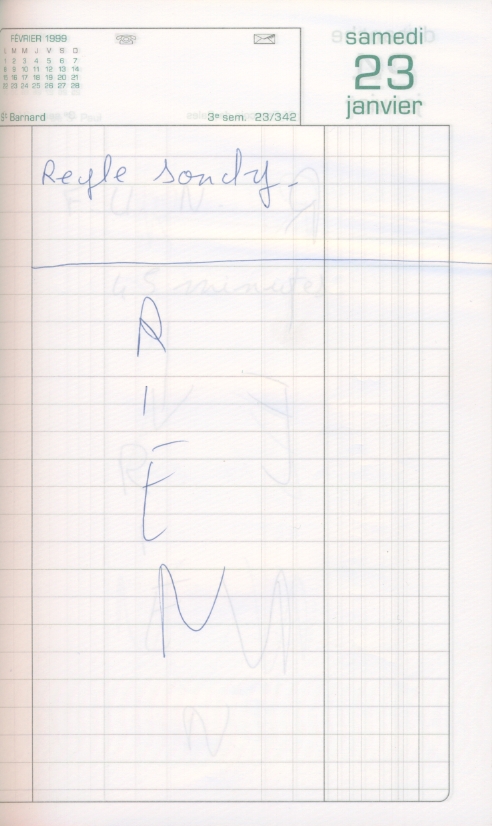 FÉVRIER 1999
L M M J V S D
1 2 3 4 5 6 7
8 9 10 11 12 13 14
15 16 17 18 19 20 21
22 23 24 25 26 27 28
St Barnard
3e sem. 23/342
samedi
23
janvier
Regle
R
I
E
N